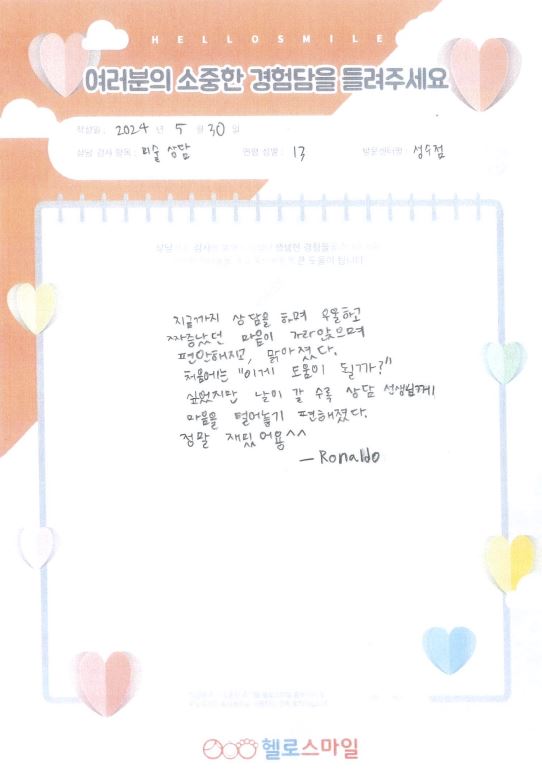 HELLOSMILE
여러분의 소중한 경험담을 들려주세요
작성일 : 2024 년 5 월 30 일
상담·검사 항목 : 미술 상담 연령·성별 : 13 방문센터명 : 성수점
큰 도움이 됩니다
지금까지 상담을 하며 우울하고
짜증났던 마음이 가라앉으며
편안해지고, 맑아졌다.
처음에는 "이게 도움이 될까?"
싶었지만 날이 갈 수록 상담 선생님께
마음을 털어놓기 편해졌다.
정말 재밌어용^^
- Ronaldo
헬로스마일